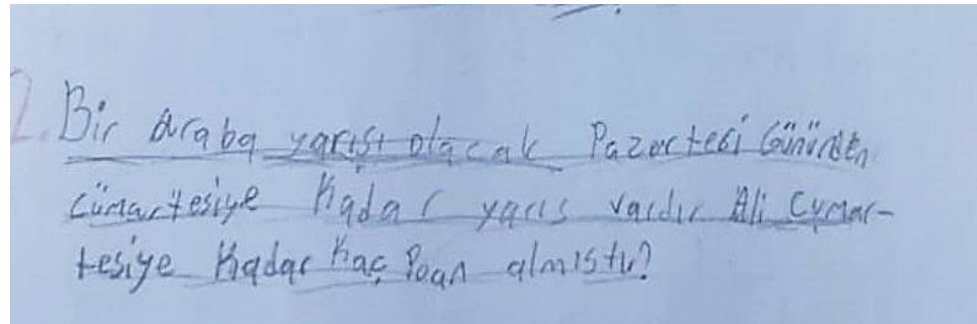 2. Bir araba yarışı olacak Pazartesi Gününden
cümartesiye Kadar yarıs vardır Ali Cumar-
tesiye Kadar Kaç Poan almıstır?